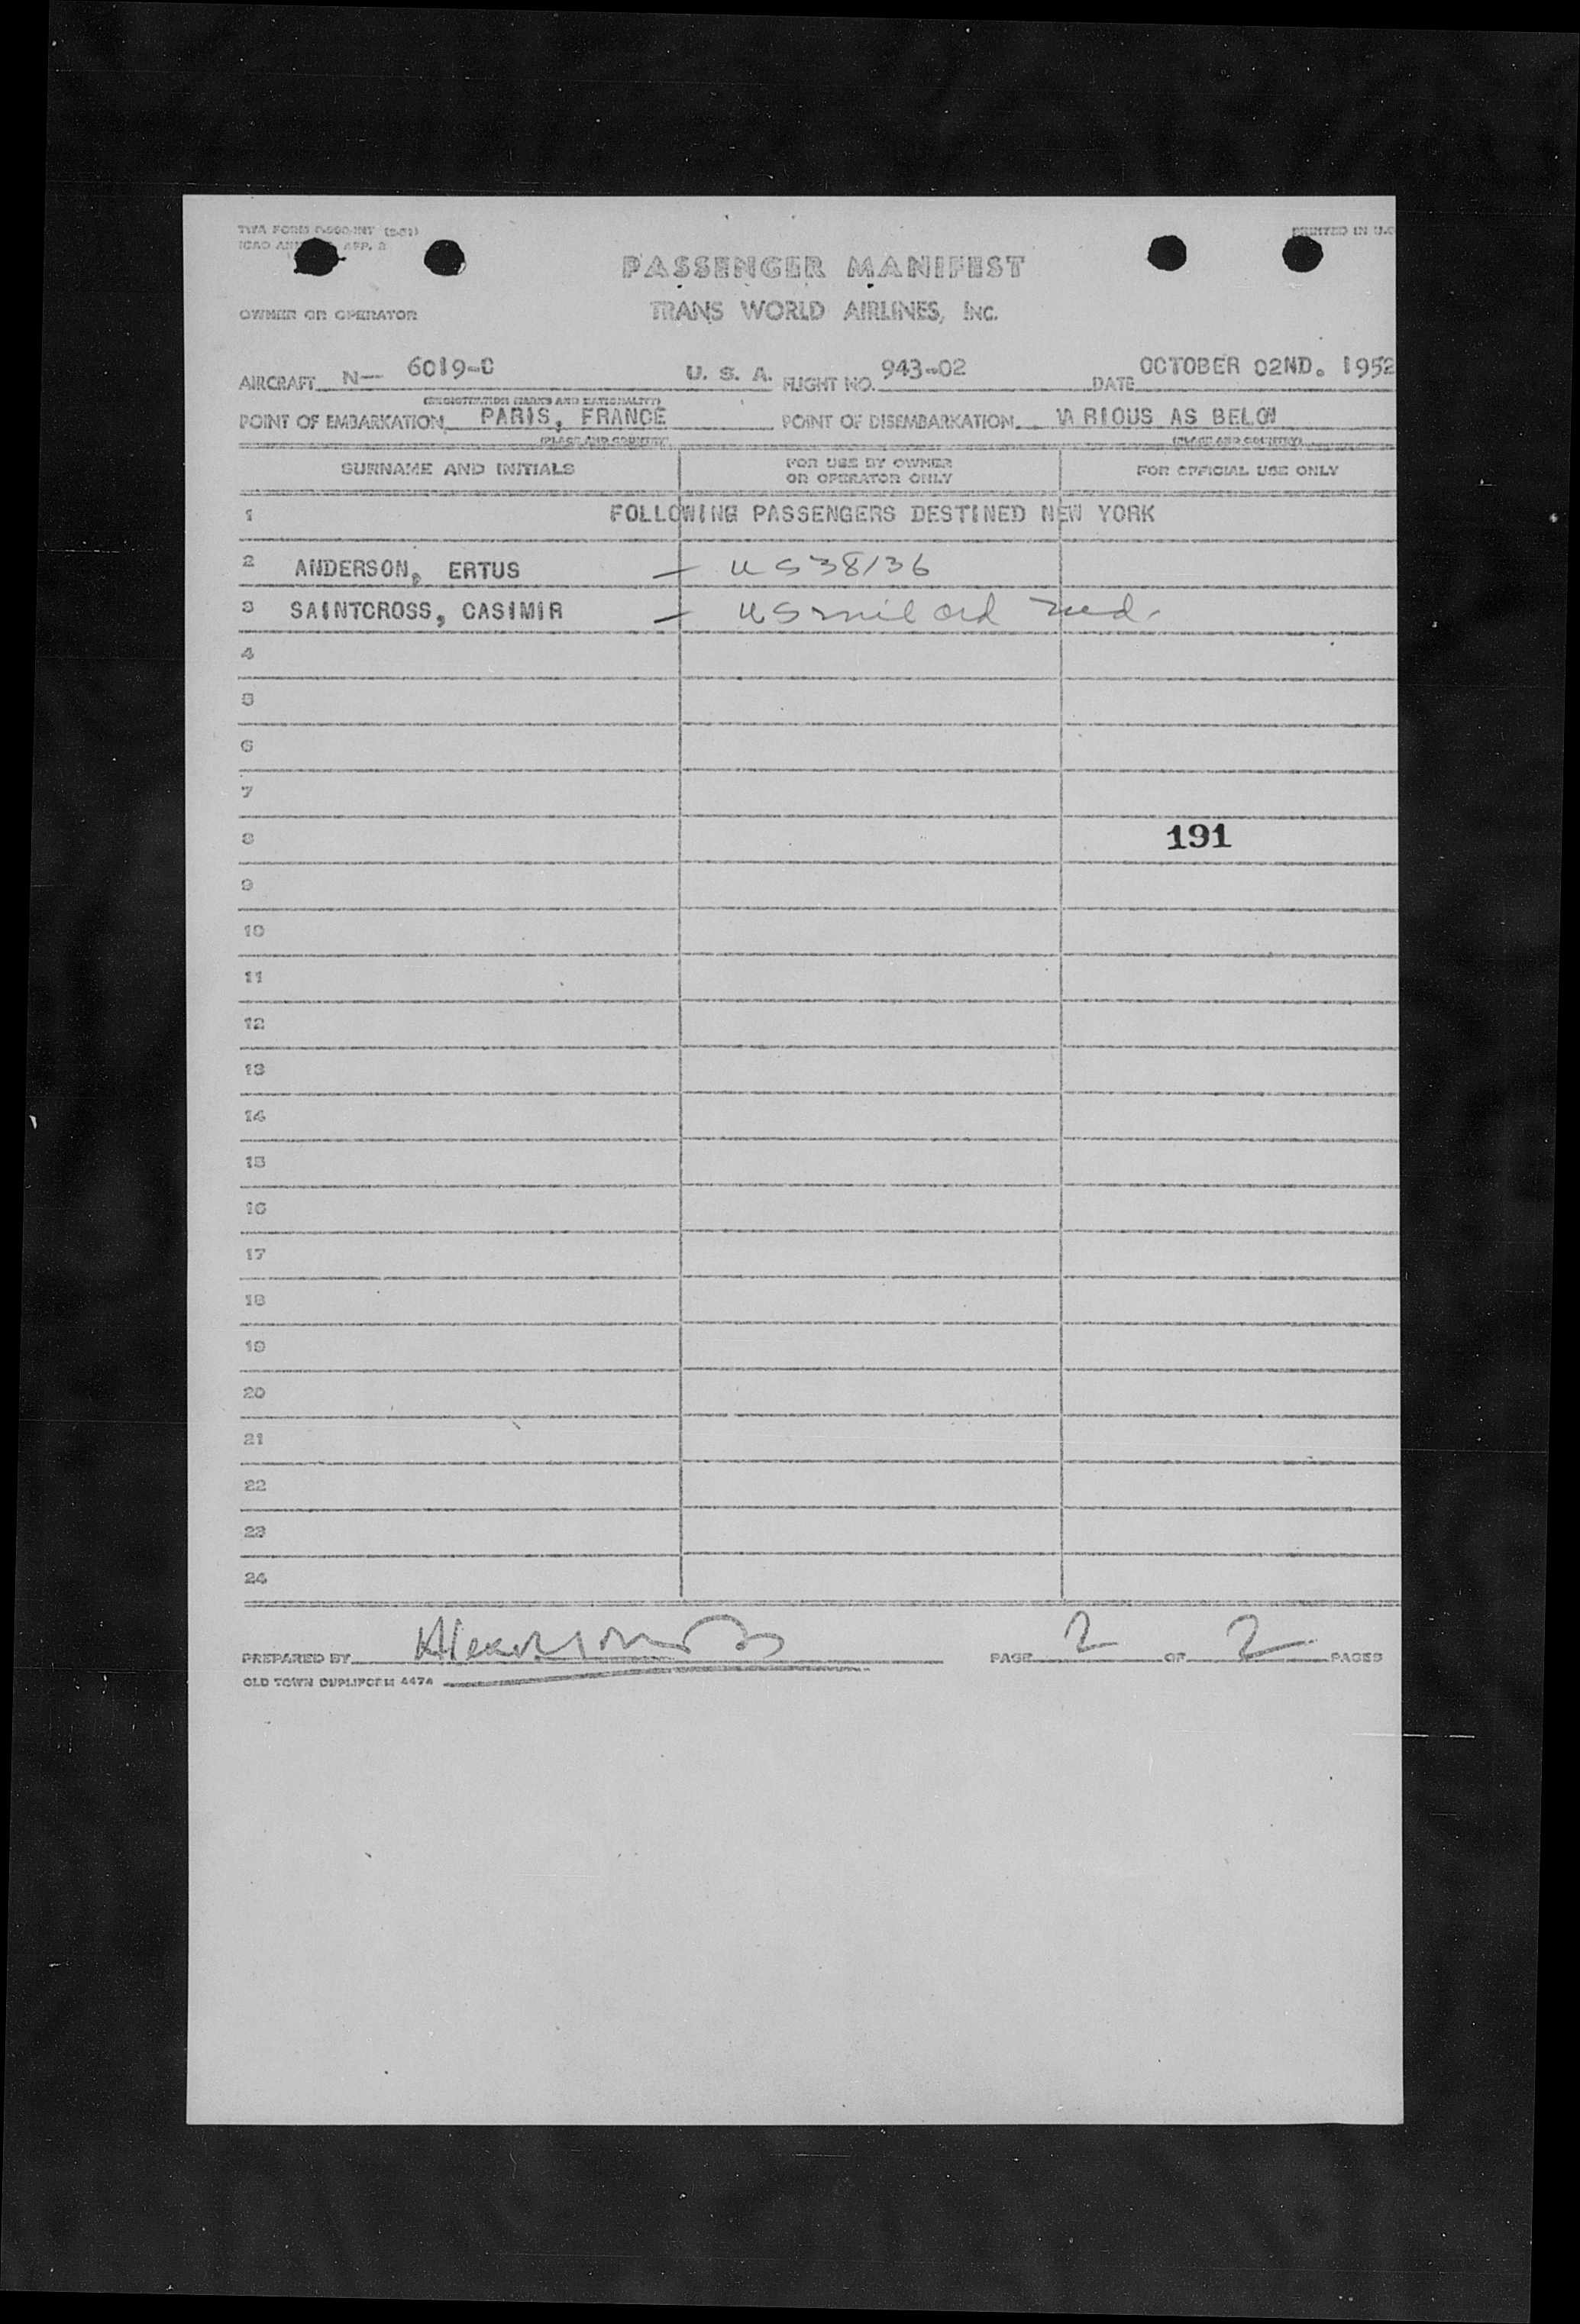 PRINTED IN U.S
ICAO APP. 2
PASSENGER MANIFEST
OWNER OR OPERATOR
TRANS WORLD AIRLINES, INC.
AIRCRAFT N— 6019-C U. S. A. FLIGHT NO. 943-02 DATE OCTOBER 02ND. 1952
(REGISTRATION MARKS AND NATIONALITY)
POINT OF EMBARKATION PARIS, FRANCE POINT OF DISEMBARKATION VA RIOUS AS BELOW
(PLACE AND COUNTRY) (PLACE AND COUNTRY)
SURNAME AND INITIALS FOR USE BY OWNER OR OPERATOR ONLY FOR OFFICIAL USE ONLY
1 FOLLOWING PASSENGERS DESTINED NEW YORK
2 ANDERSON, ERTUS — US38136
3 SAINTCROSS, CASIMIR — US mil ord
4
5
6
7
8 191
9
10
11
12
13
14
15
16
17
18
19
20
21
22
23
24
PREPARED BY PAGE 2 OF 2 PAGES
OLD TOWN DUPLIFORM 4474